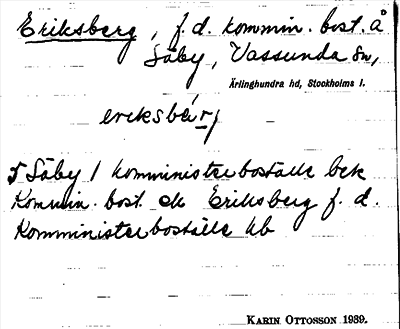 Eriksberg, f. d. kommin. bost. å
Säby, Vassunda sn,
Ärlinghundra hd, Stockholms l.
eriksbér/
Säby 1 komministerboställe bek
Kommin. bost. ek Eriksberg f. d.
Komministerboställe hb
KARIN OTTOSSON 1939.